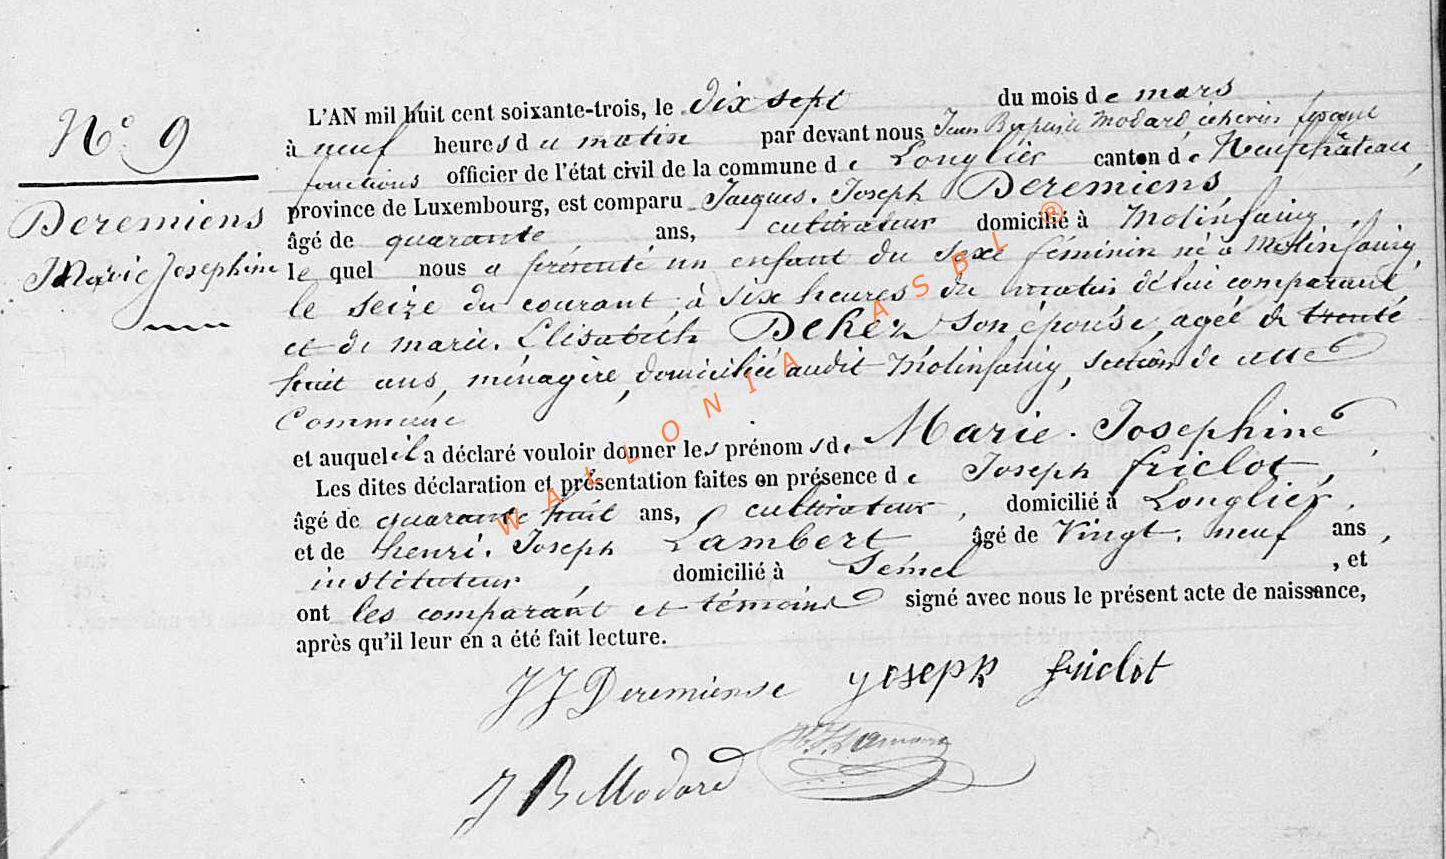 N° 9
Deremiens
Marie Josephine
L'AN mil huit cent soixante-trois, le dix sept du mois de mars
à neuf heures du matin par devant nous Jean Baptiste Modard échevin fesant
fonctions officier de l'état civil de la commune de Longlier canton de Neufchâteau,
province de Luxembourg, est comparu Jacques. Joseph Deremiens
âgé de quarante ans, cultivateur domicilié à Molinfaing,
le quel nous a présenté un enfant du sexe féminin né à Molinfaing,
le seize du courant, à six heures du matin de lui comparant,
et de marie. Elisabeth Dehez son épouse, agée de trente
huit ans, ménagère, domiciliée audit Molinfaing, section de cette
Commune
et auquel il a déclaré vouloir donner les prénoms de Marie. Josephine
Les dites déclaration et présentation faites en présence de Joseph friclot,
âgé de quarante huit ans, cultivateur, domicilié à Longlier,
et de henri. Joseph Lambert âgé de Vingt. neuf ans,
instituteur, domicilié à Semel, et
ont les comparant et témoins signé avec nous le présent acte de naissance,
après qu'il leur en a été fait lecture.
JJ Deremiense Joseph friclot
JB Modard
WALLONIA ASBL ®